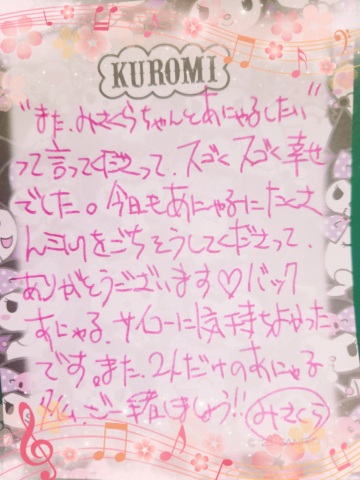 KUROMI
"また、みさくらちゃんとあにゃるしたい"
って言ってくださって、スゴくスゴく幸せ
でした。今日もあにゃるにたくさ
んミルクをごちそうしてくださって、
ありがとうございます♡バック
あにゃる、サイコーに気持ちよかった
です。また、2人だけのあにゃる
タイム、ご一緒しましょう!!
みさくら